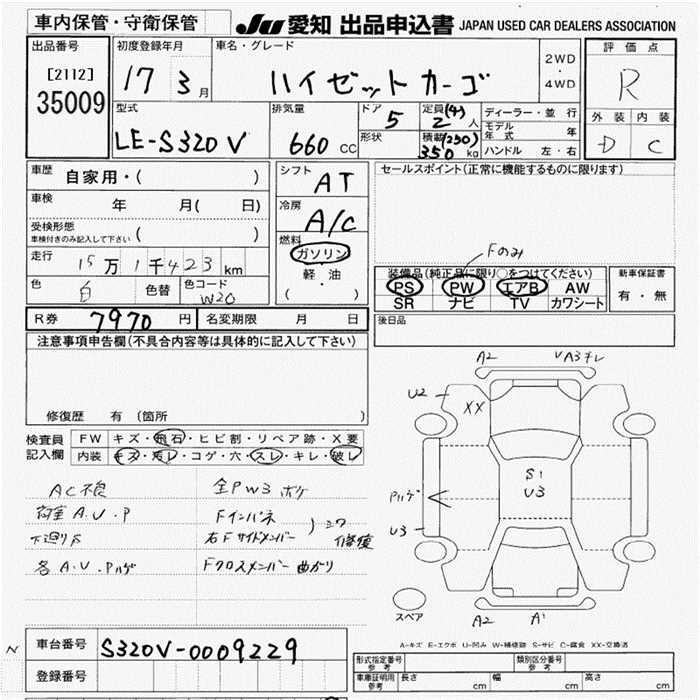 車内保管・守衛保管
JU 愛知 出品申込書 JAPAN USED CAR DEALERS ASSOCIATION
出品番号
[2112]
35009
初度登録年月
17 3月
車名・グレード
ハイゼットカーゴ
2WD
・
4WD
評価点
R
外装 内装
D C
型式
LE-S320V
排気量
660 cc
ドア
5
形状
定員 (4)
2 人
積載 (250)
350 kg
ディーラー・並行
モデル年式 年
ハンドル 左・右
車歴
自家用・( )
車検
年 月( 日)
受検形態
車検付きのみ記入して下さい ( )
走行
15万1千423km
色
白
色替
色コード
W20
シフト
AT
冷房
A/C
燃料
ガソリン
・
軽・油
( ・ )
セールスポイント(正常に機能するものに限ります)
Fのみ
装備品(純正品に限り○をつけてください)
PS PW エアB AW
SR ナビ TV カワシート
新車保証書
有・無
R券 7970円
名変期限 月 日
後日品
注意事項申告欄(不具合内容等は具体的に記入して下さい)
修復歴 有 (箇所 )
検査員
記入欄
FW キズ・飛石・ヒビ割・リペア跡・X要
内装 キズ・汚レ・コゲ・穴・スレ・キレ・破レ
AC不良
荷室A.U.P
下廻りS
各A.U.Pハゲ
全PW3ボケ
Fインパネ
右Fサイドメンバー
シワ
修復
Fクロスメンバー曲がり
A2
VA3キレ
U2
XX
S1
U3
Pハゲ
U3
A2
A1
スペア
A-キズ E-エクボ U-凹み W-補修跡 S-サビ C-腐食 XX-交換済
N
車台番号
S320V-0009229
登録番号
形式指定番号
参考
類別区分番号
参考
車庫証明用
参考
長さ cm
幅 cm
高さ cm